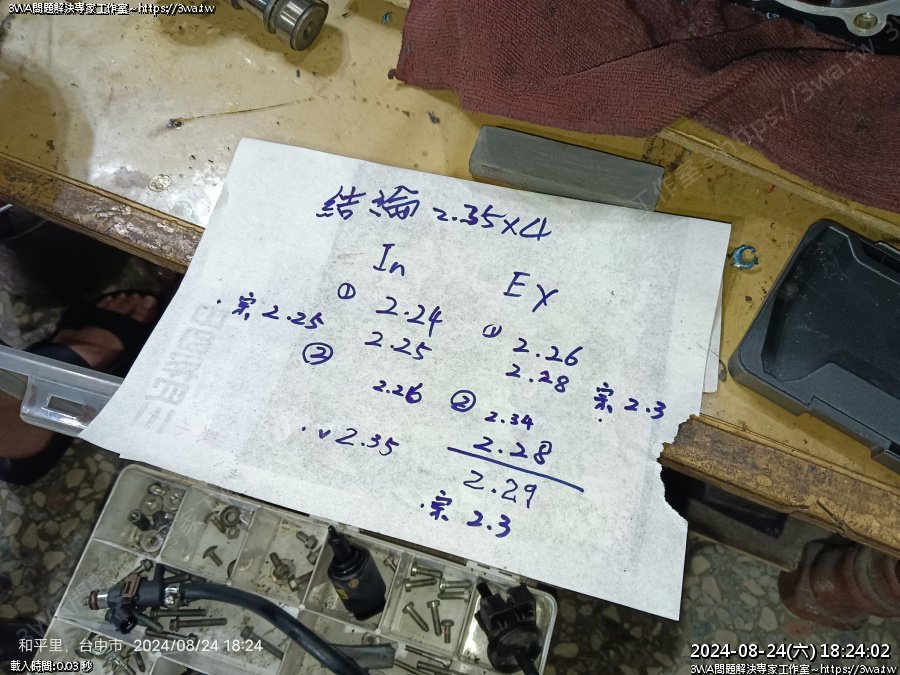 3WA問題解決專家工作室~https://3wa.tw
3WA問題解決專家工作室~https://3wa.tw
結論 2.35×4
In
Ex
① 2.24
2.25
宗 2.25
① 2.26
2.28
宗 2.3
②
2.26
2.35
② 2.34
2.28
2.29
宗 2.3
和平里, 台中市 2024/08/24 18:24
載入時間:0.03 秒
2024-08-24(六) 18:24:02
3WA問題解決專家工作室~https://3wa.tw